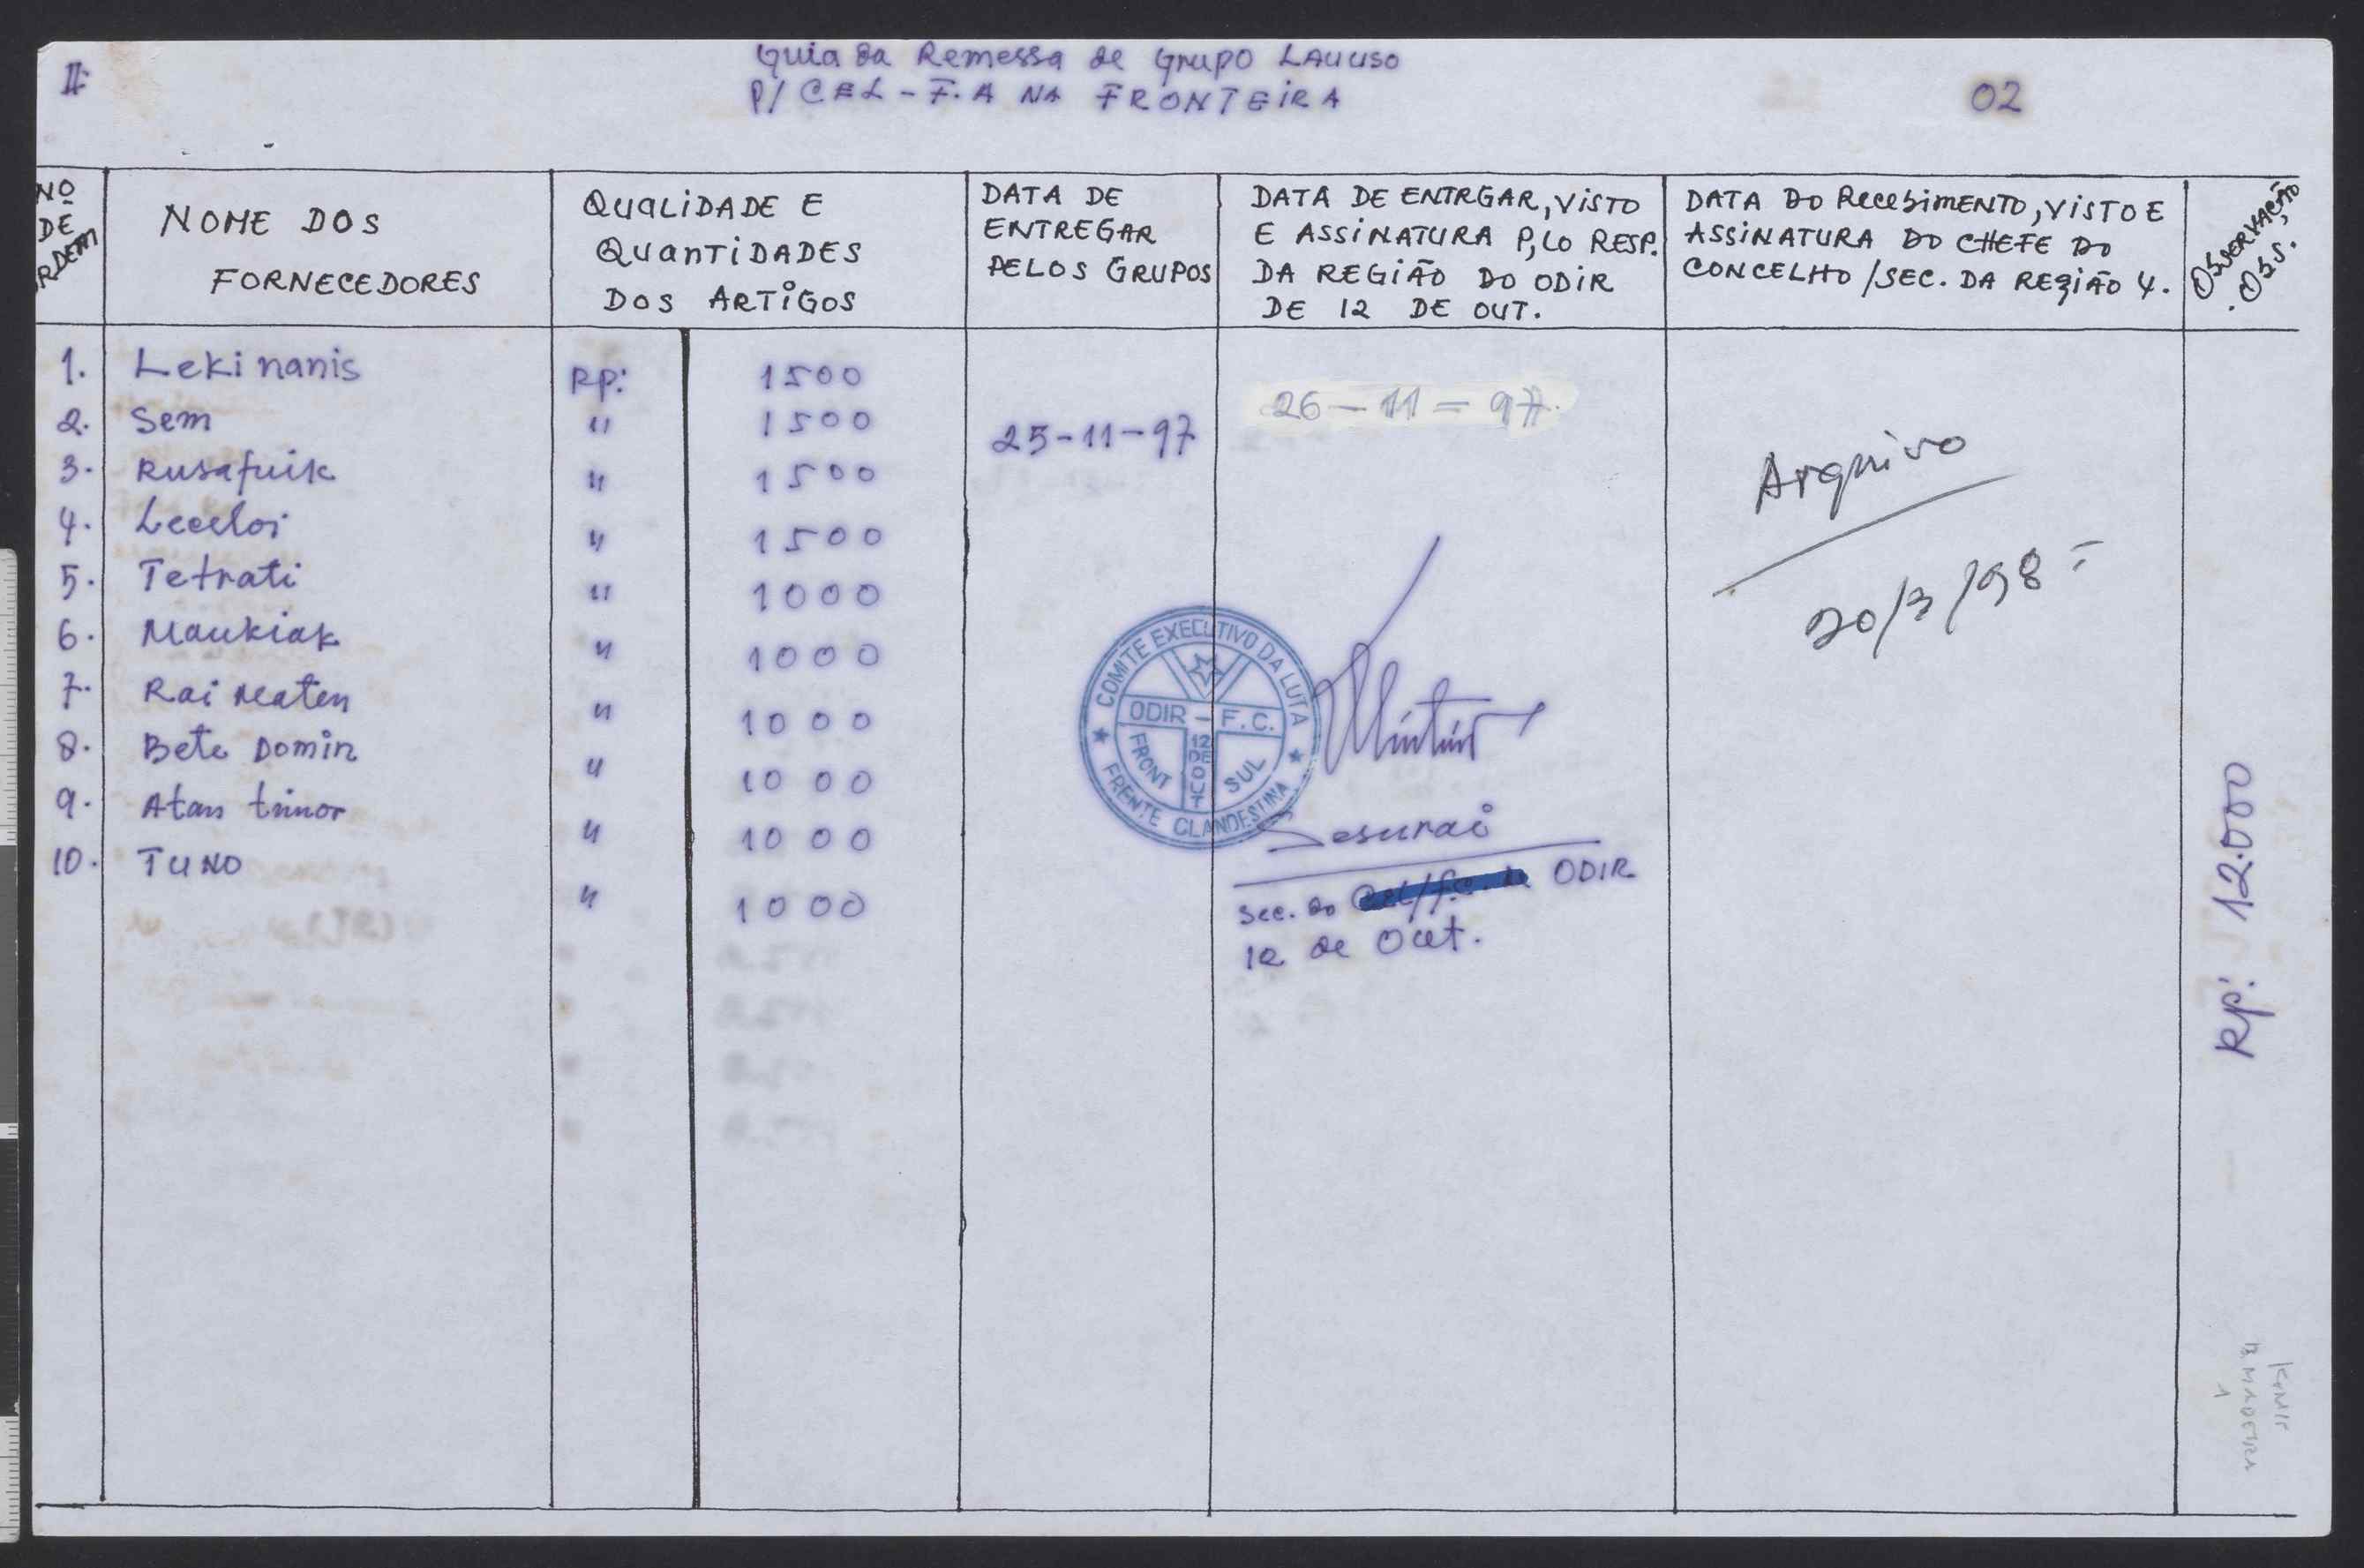 II
Guia da Remessa de Grupo Lauuso
P/ CEL - F.A NA FRONTEIRA
02
Nº DE RDEM
NOME DOS FORNECEDORES
QUALIDADE E QUANTIDADES DOS ARTIGOS
DATA DE ENTREGAR PELOS GRUPOS
DATA DE ENTRGAR, VISTO E ASSINATURA P,LO RESP. DA REGIÃO DO ODIR DE 12 DE OUT.
DATA DO RecebiMENTO, VISTO E ASSINATURA DO CHEFE DO CONCELHO / SEC. DA REGIÃO 4.
OBSERVAÇÃO, OBS.
1. Leki nanis Rp: 1500
2. Sem " 1500
3. Rusafuik " 1500
4. Leceloi " 1500
5. Tetrati " 1000
6. Maukiak " 1000
7. Rai Meaten " 1000
8. Bete Domin " 1000
9. Atan timor " 1000
10. TUNO " 1000
25-11-97
26-11=97.
Arquivo
20/3/98=
COMITE EXECUTIVO DA LUTA
ODIR - F.C.
FRONT SUL
12 DE OUT
FRENTE CLANDESTINA
Lesurai
Sec. do ODIR
12 de Out.
Rp: 12.000